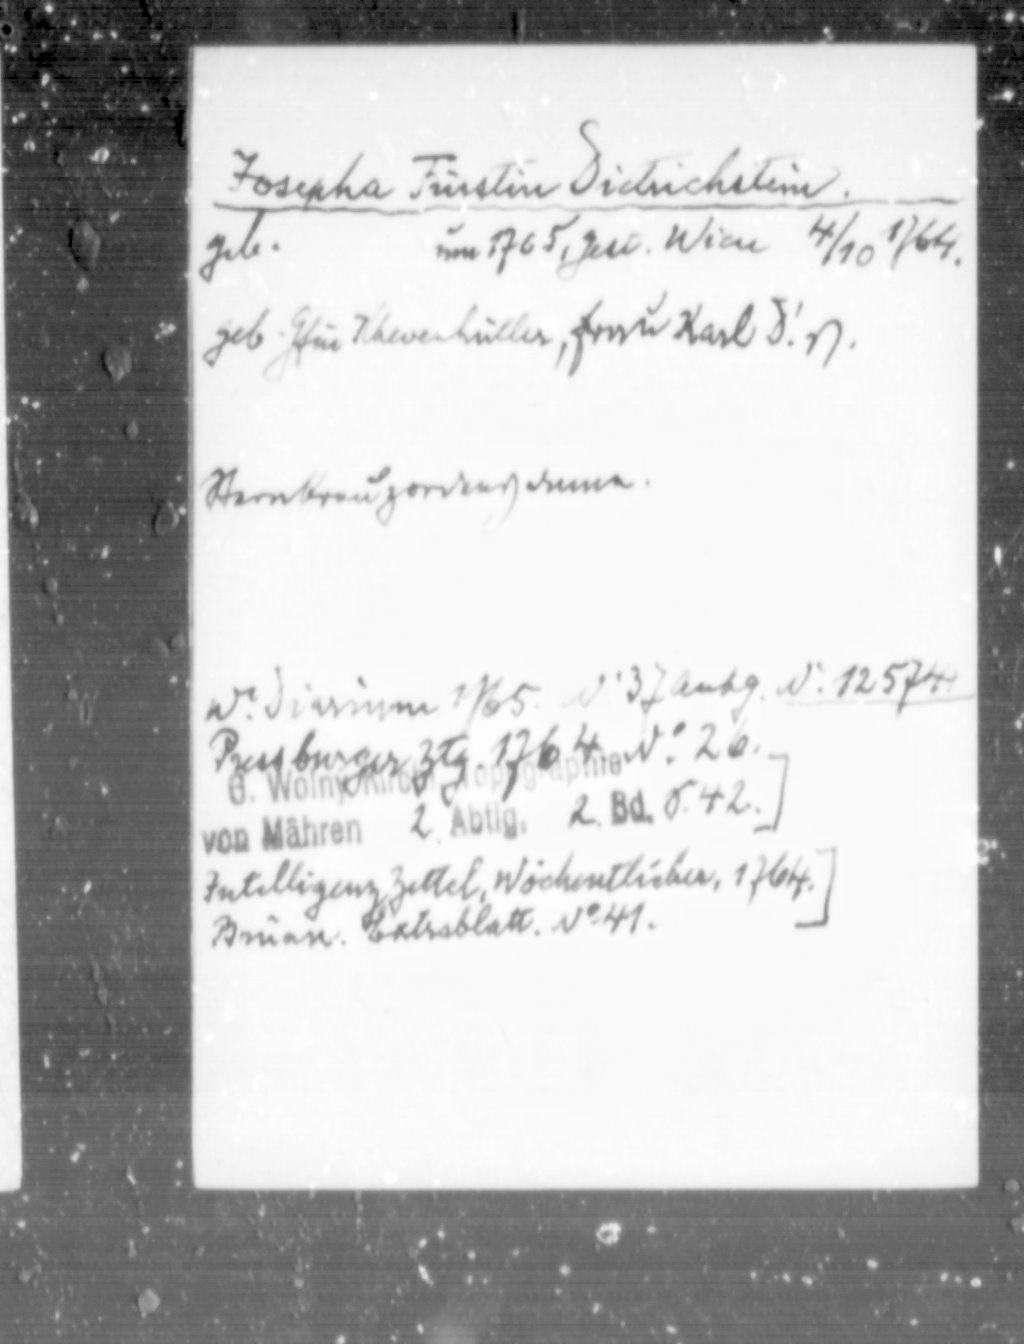 Josepha Fürstin Dietrichstein.
geb. um 1765, gest. Wien 4/10 1764.
geb. Gfin Khevenhüller, Frau Karl D's.
Sternkreuzordensdame.
Wr. Diarium 1765. No 37 Anhg. No. 12574
Pressburger Ztg 1764 No. 26.
G. Wolny, Kirchl. Topographie
von Mähren 2. Abtlg. 2. Bd. S. 42.]
Intelligenz Zettel, Wöchentlicher, 1764.
Brünn. Extrablatt. No. 41.]